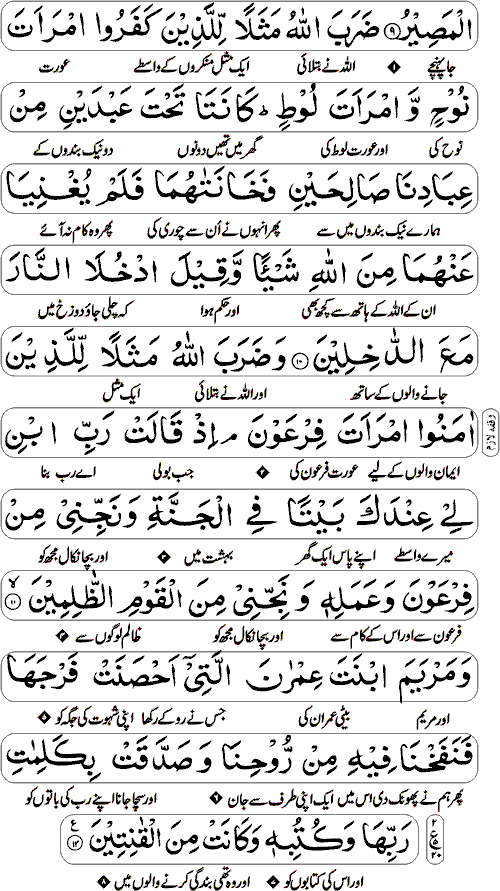 الْمَصِيْرُ ۹ ضَرَبَ اللهُ مَثَلًا لِّلَّذِيْنَ كَفَرُوا امْرَاَتَ
جا پہنچے ۱ اللہ نے بتلائی ایک مثل منکروں کے واسطے عورت
نُوْحٍ وَّ امْرَاَتَ لُوْطٍ ؕ كَانَتَا تَحْتَ عَبْدَيْنِ مِنْ
نوح کی اور عورت لوط کی گھر میں تھیں دونوں دو نیک بندوں کے
عِبَادِنَا صَالِحَيْنِ فَخَانَتٰهُمَا فَلَمْ يُغْنِيَا
ہمارے نیک بندوں میں سے پھر انہوں نے اُن سے چوری کی پھر وہ کام نہ آئے
عَنْهُمَا مِنَ اللهِ شَيْـًٔا وَّقِيْلَ ادْخُلَا النَّارَ
ان کے اللہ کے ہاتھ سے کچھ بھی اور حکم ہوا کہ چلی جاؤ دوزخ میں
مَعَ الدّٰخِلِيْنَ ۱۰ وَضَرَبَ اللهُ مَثَلًا لِّلَّذِيْنَ
جانے والوں کے ساتھ اور اللہ نے بتلائی ایک مثل
اٰمَنُوا امْرَاَتَ فِرْعَوْنَ ۘ اِذْ قَالَتْ رَبِّ ابْنِ
وقف لازم
ایمان والوں کے لیے عورت فرعون کی ۲ جب بولی اے رب بنا
لِيْ عِنْدَكَ بَيْتًا فِي الْجَنَّةِ وَنَجِّنِيْ مِنْ
میرے واسطے اپنے پاس ایک گھر بہشت میں ۵ اور بچا نکال مجھ کو
فِرْعَوْنَ وَعَمَلِهٖ وَنَجِّنِيْ مِنَ الْقَوْمِ الظّٰلِمِيْنَ ۙ ۱۱
فرعون سے اور اس کے کام سے اور بچا نکال مجھ کو ظالم لوگوں سے ۴
وَمَرْيَمَ ابْنَتَ عِمْرٰنَ الَّتِيْۤ اَحْصَنَتْ فَرْجَهَا
اور مریم بیٹی عمران کی جس نے روکے رکھا اپنی شہوت کی جگہ کو ۵
فَنَفَخْنَا فِيْهِ مِنْ رُّوْحِنَا وَصَدَّقَتْ بِكَلِمٰتِ
پھر ہم نے پھونک دی اس میں ایک اپنی طرف سے جان ۶ اور سچا جانا اپنے رب کی باتوں کو
رَبِّهَا وَكُتُبِهٖ وَكَانَتْ مِنَ الْقٰنِتِيْنَ ۱۲ ع
۲ ع ۵ ۲۰
اور اس کی کتابوں کو ۷ اور وہ تھی بندگی کرنے والوں میں ۸